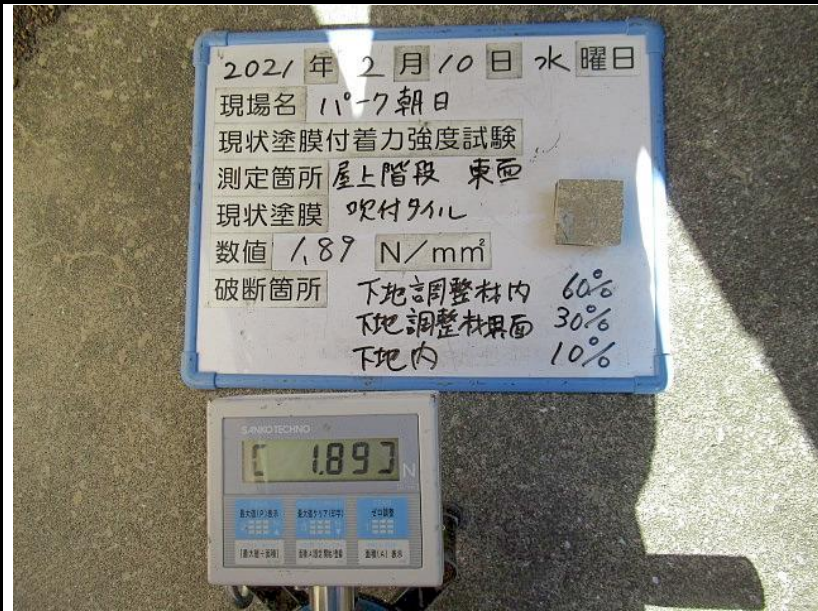 2021 年 2 月 10 日 水 曜日
現場名 パーク朝日
現状塗膜付着力強度試験
測定箇所 屋上階段 東面
現状塗膜 吹付タイル
数値 1.89 N/mm²
破断箇所 下地調整材内 60%
下地調整材界面 30%
下地内 10%
SANKO TECHNO
[ 1.89] N
最大値(P)表示 最大値クリア(印字) ゼロ調整
[最大値÷面積] 面積(A)表示